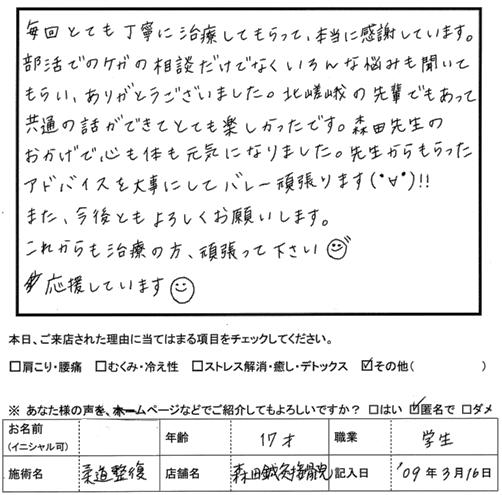 毎回とても丁寧に治療してもらって、本当に感謝しています。
部活でのケガの相談だけでなくいろんな悩みも聞いて
もらい、ありがとうございました。北嵯峨の先輩でもあって
共通の話ができてとても楽しかったです。森田先生の
おかげで心も体も元気になりました。先生からもらった
アドバイスを大事にしてバレー頑張ります(・∀・)!!
また、今後ともよろしくお願いします。
これからも治療の方、頑張って下さい
応援しています
本日、ご来店された理由に当てはまる項目をチェックしてください。
□肩こり・腰痛 □むくみ・冷え性 □ストレス解消・癒し・デトックス ☑その他( )
※ あなた様の声を、ホームページなどでご紹介してもよろしいですか? □はい ☑匿名で □ダメ
お名前 年齢 17才 職業 学生
(イニシャル可)
施術名 柔道整復 店舗名 森田鍼灸接骨院 記入日 '09年3月16日